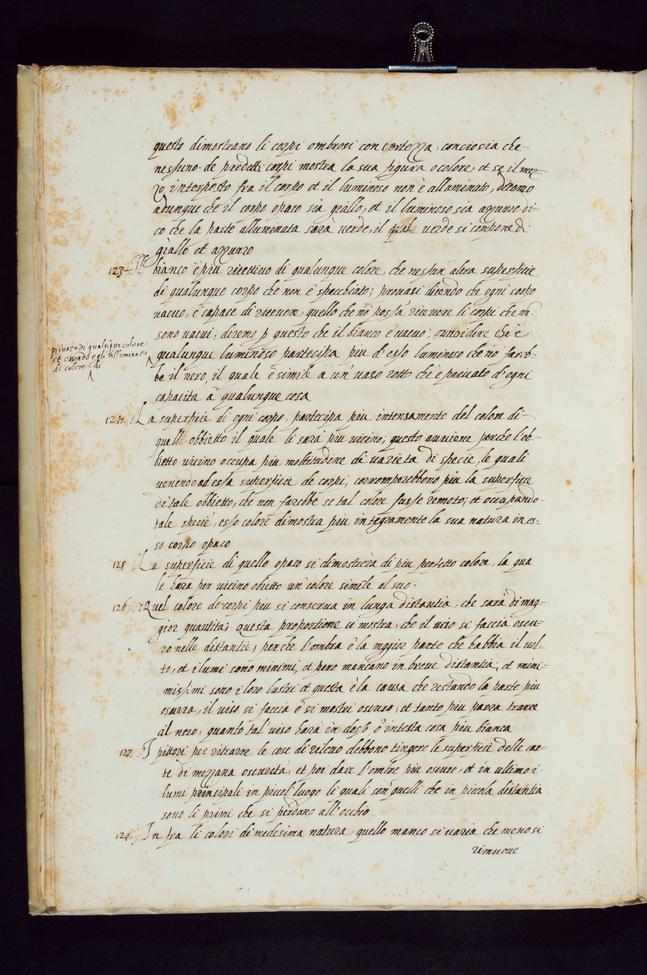 questo dimostrano li corpi ombrosi con certezza, conciosia che
nessuno de predetti corpi mostra la sua figura o colore, et se il mez-
zo, interposto fra il corpo et il luminoso non è alluminato, diremo
adunque che il corpo opaco sia giallo, et il luminoso sia azzurro di-
co che la parte alluminata sara verde, il qual verde si compone di
giallo et azzurro
123 Il bianco è piu ricettivo di qualunque colore, che nessun altra superfitie
di qualunque corpo che non è specchiato; provasi dicendo che ogni corpo
vacuo, è capace di ricevere quello che nō possa ricevere li corpi che nō
sono vacui, diremo p questo che il bianco è vacuo,
privato di qualunque colore
et essendo egli alluminato
di colore di
qualunque luminoso partecipa piu d'esso luminoso che nō fareb-
be il nero, il quale è simile a un' vaso rotto che è privato d'ogni
capacita à qualunque cosa
124 La superfitie di ogni corpo, partecipa piu intensamente del colore di
quell' obbietto il quale li sarà piu vicino; questo avviene perche l'ob-
bietto vicino occupa piu moltitudine di varieta di specie, le quali
venendo ad essa superfitie de corpi, corromperebbono piu la superfitie
di tale obbietto, che non farebbe se tal colore fusse remoto; et occupando
tale specie, esso colore dimostra piu integramente la sua natura in es-
so corpo opaco
125 La superfitie di quello opaco si dimostrerà di piu perfetto colore, la qua
le harà per vicino obietto un' colore simile al suo.
126 Quel colore de corpi piu si conserva in lunga distantia, che sarà di mag-
gior quantità; questa proportione ci mostra, che il viso si faccia oscu-
ro nelle distantie, perche l'ombra è la maggior parte che habbia il vol-
to, et i lumi sono minimi, et pero mancano in breve distantia; et mini-
missimi sono i loro lustri et questa è la causa che restando la parte piu
oscura, il viso si faccia ò si mostri oscuro, et tanto piu parra trarre
al nero, quanto tal viso harà in dosso ò in testa cosa piu bianca
127 I pittori per ritrarre le cose di rilevo debbono tingere le superfitie delle car-
te di mezzana oscurità, et poi dare l'ombre piu oscure, et in ultimo i
lumi principali in piccol luogo li quali son quelli che in picola distantia
sono li primi che si perdano all'occhio
128 In fra li colori di medesima natura quello manco si varia che meno si
rimuove